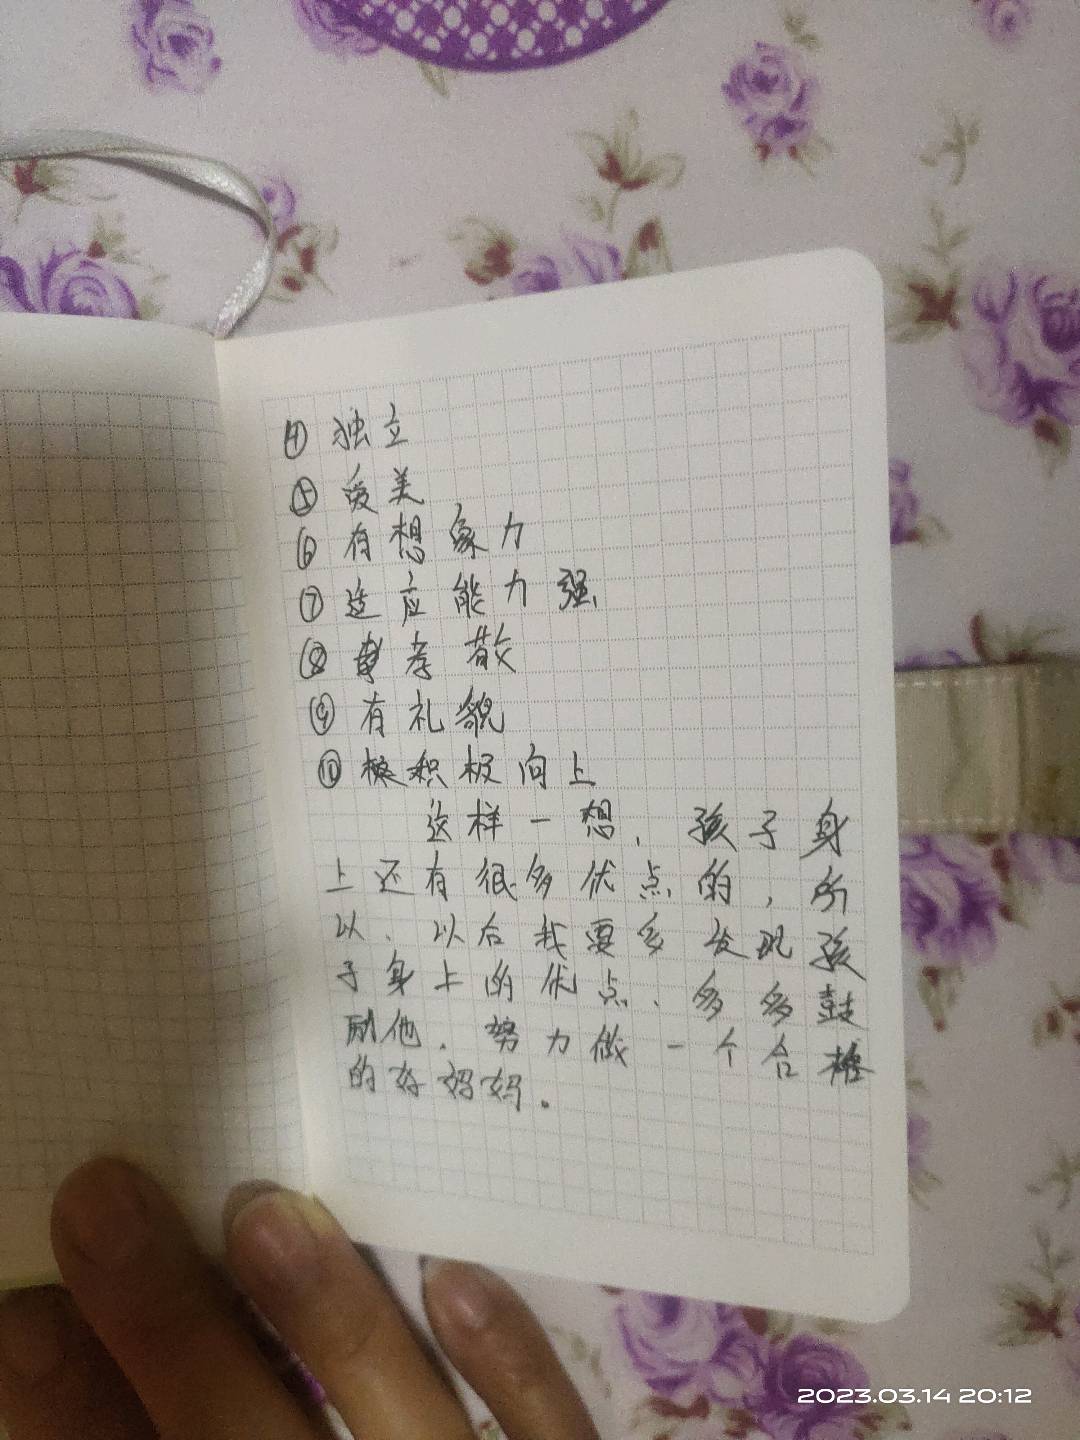 ④ 独立
⑤ 爱美
⑥ 有想象力
⑦ 适应能力强
⑧ 孝敬
⑨ 有礼貌
⑩ 积极向上
这样一想，孩子身
上还有很多优点的，所
以、以后我要多发现孩
子身上的优点、多多鼓
励他．努力做一个合格
的好妈妈。
2023.03.14 20:12